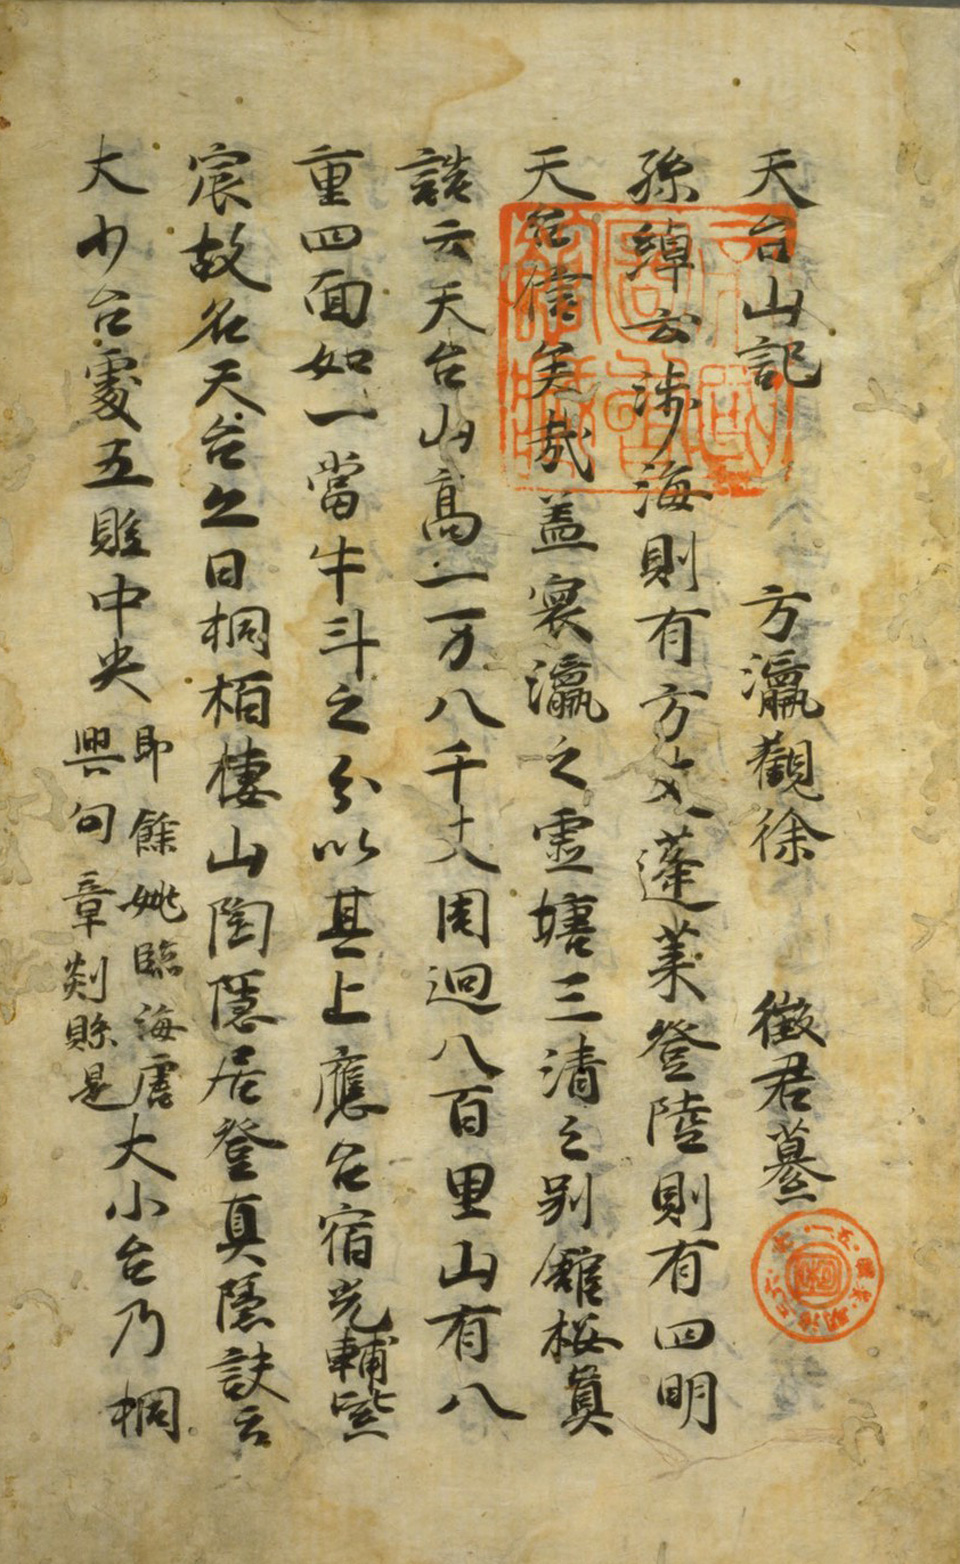 天台山記 方瀛觀徐 徵君纂
孫綽云涉海則有方丈蓬萊登陸則有四明
天台偉矣哉蓋寰瀛之靈墟三清之別館按真
誥云天台山高一万八千丈周迴八百里山有八
重四面如一當牛斗之分以其上應台宿光輔紫
宸故名天台之日桐栢棲山陶隱居登真隱訣云
大小台處五縣中央
即餘姚臨海唐
興句章剡縣是
大小台乃桐